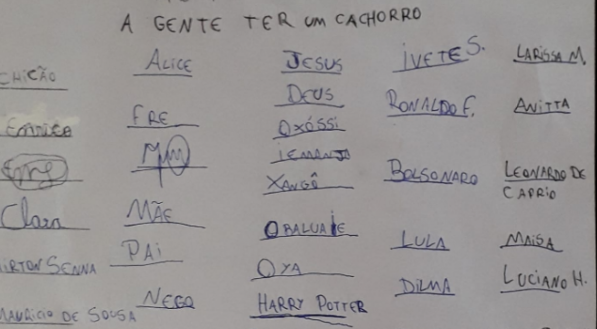 A GENTE TER UM CACHORRO
CHICÃO
Clara
AIRTON SENNA
MAURICIO DE SOUSA
ALICE
FRE
MÃE
PAI
NEGO
JESUS
DEUS
OXÓSSI
IEMANJA
XANGÔ
OBALUAIE
OYA
HARRY POTTER
IVETE S.
RONALDO F.
BOLSONARO
LULA
DILMA
LARISSA M.
ANITTA
LEONARDO DE
CAPRIO
MAISA
LUCIANO H.